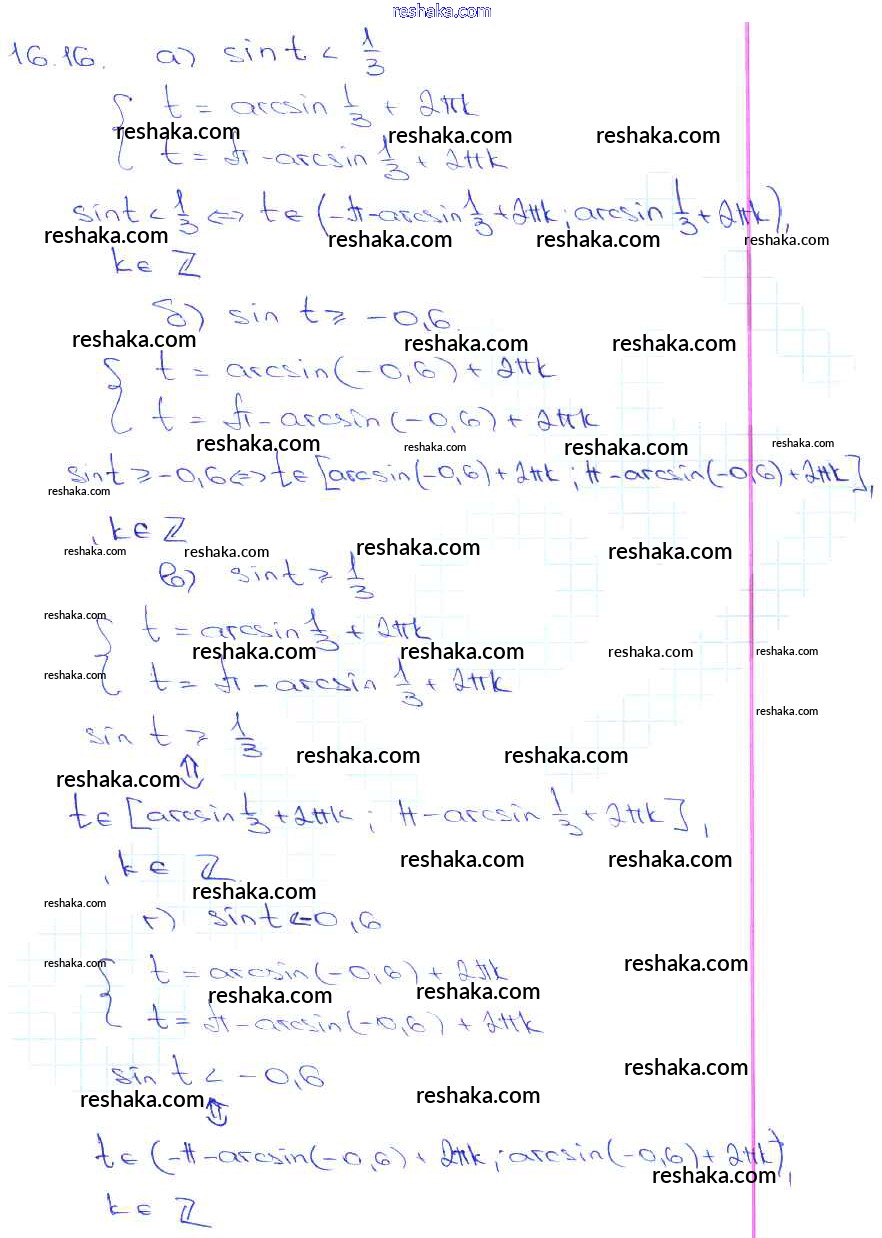 reshaka.com
16.16. а) sin t < 1/3
{ t = arcsin 1/3 + 2πk
reshaka.com reshaka.com reshaka.com
t = π - arcsin 1/3 + 2πk
sin t < 1/3 <=> t ∈ (-π - arcsin 1/3 + 2πk; arcsin 1/3 + 2πk),
reshaka.com reshaka.com reshaka.com reshaka.com
k ∈ ℤ
б) sin t ⩾ -0,6.
reshaka.com reshaka.com reshaka.com
{ t = arcsin(-0,6) + 2πk
t = π - arcsin(-0,6) + 2πk
reshaka.com reshaka.com reshaka.com reshaka.com
sin t ⩾ -0,6 <=> t ∈ [arcsin(-0,6) + 2πk; π - arcsin(-0,6) + 2πk],
reshaka.com
, k ∈ ℤ
reshaka.com reshaka.com reshaka.com reshaka.com
в) sin t ⩾ 1/3
reshaka.com
{ t = arcsin 1/3 + 2πk
reshaka.com reshaka.com reshaka.com reshaka.com
reshaka.com
t = π - arcsin 1/3 + 2πk
reshaka.com
sin t ⩾ 1/3
reshaka.com reshaka.com
reshaka.com ⇕
t ∈ [arcsin 1/3 + 2πk; π - arcsin 1/3 + 2πk],
reshaka.com reshaka.com
, k ∈ ℤ
reshaka.com
reshaka.com
г) sin t < -0,6
reshaka.com reshaka.com
{ t = arcsin(-0,6) + 2πk
reshaka.com reshaka.com
t = π - arcsin(-0,6) + 2πk
reshaka.com
sin t < -0,6
reshaka.com ⇕ reshaka.com
t ∈ (-π - arcsin(-0,6) + 2πk; arcsin(-0,6) + 2πk),
reshaka.com
k ∈ ℤ